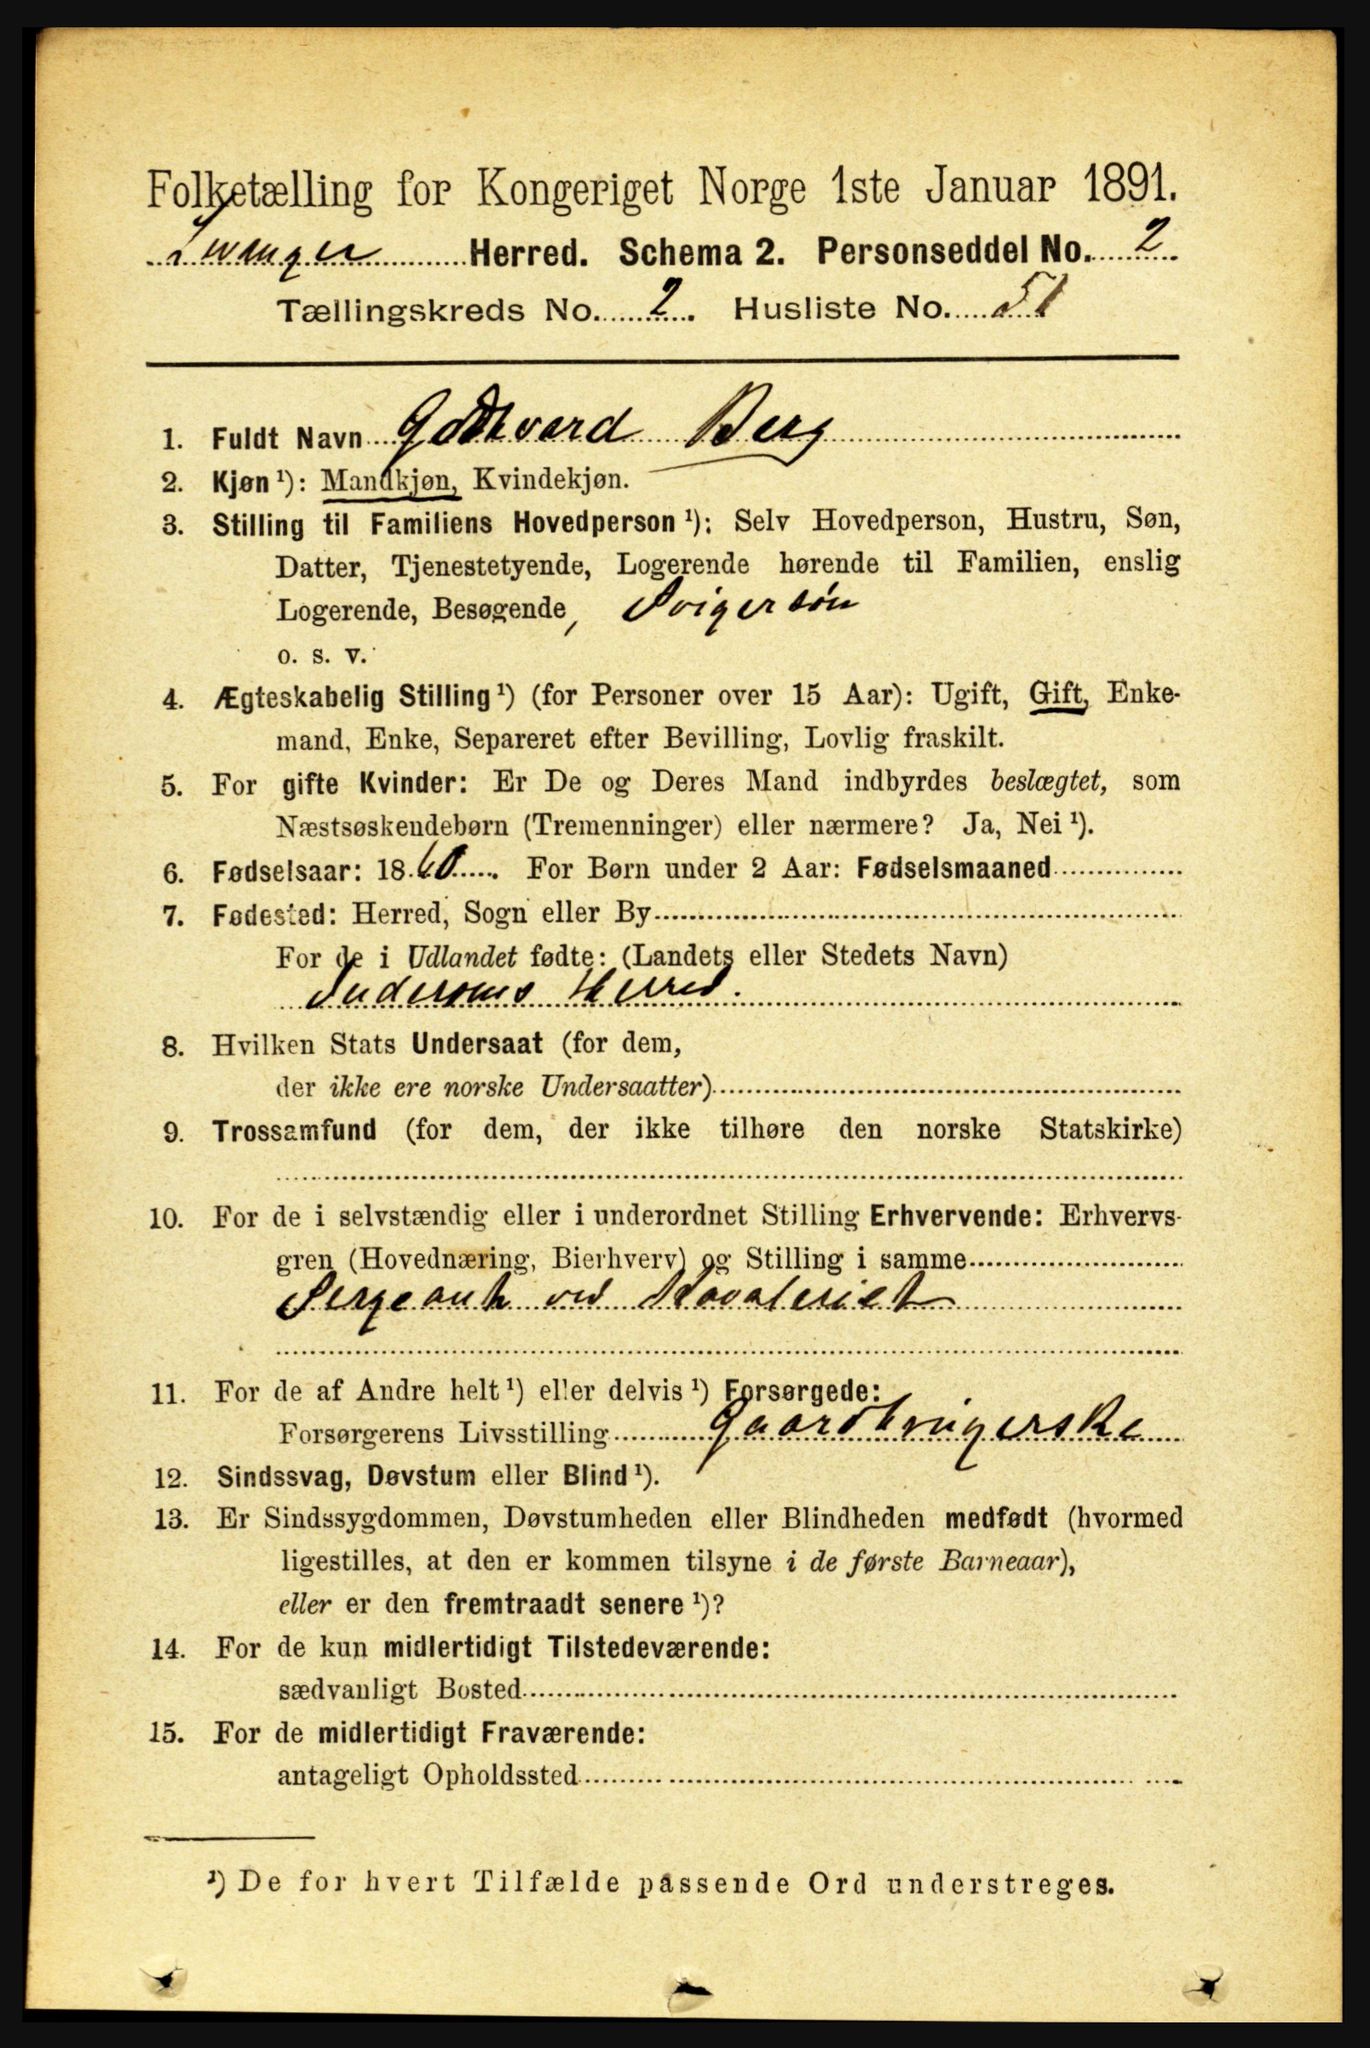 Folketælling for Kongeriget Norge 1ste Januar 1891.
Herred. Schema 2. Personseddel No. 2
Tællingskreds No. 2. Husliste No. 51
1. Fuldt Navn Godtvard Berg
2. Kjøn ¹): Mandkjøn, Kvindekjøn.
3. Stilling til Familiens Hovedperson ¹): Selv Hovedperson, Hustru, Søn,
Datter, Tjenestetyende, Logerende hørende til Familien, enslig
Logerende, Besøgende, Svigersön
o. s. v.
4. Ægteskabelig Stilling ¹) (for Personer over 15 Aar): Ugift, Gift, Enke-
mand, Enke, Separeret efter Bevilling, Lovlig fraskilt.
5. For gifte Kvinder: Er De og Deres Mand indbyrdes beslægtet, som
Næstsøskendebørn (Tremenninger) eller nærmere? Ja, Nei ¹).
6. Fødselsaar: 1860. For Børn under 2 Aar: Fødselsmaaned
7. Fødested: Herred, Sogn eller By
For de i Udlandet fødte: (Landets eller Stedets Navn)
Inderøens Herred.
8. Hvilken Stats Undersaat (for dem,
der ikke ere norske Undersaatter)
9. Trossamfund (for dem, der ikke tilhøre den norske Statskirke)
10. For de i selvstændig eller i underordnet Stilling Erhvervende: Erhvervs-
gren (Hovednæring, Bierhverv) og Stilling i samme
Sergeant ved Kavaleriet
11. For de af Andre helt ¹) eller delvis ¹) Forsørgede:
Forsørgerens Livsstilling Gaardbrugerske
12. Sindssvag, Døvstum eller Blind ¹).
13. Er Sindssygdommen, Døvstumheden eller Blindheden medfødt (hvormed
ligestilles, at den er kommen tilsyne i de første Barneaar),
eller er den fremtraadt senere ¹)?
14. For de kun midlertidigt Tilstedeværende:
sædvanligt Bosted
15. For de midlertidigt Fraværende:
antageligt Opholdssted
¹) De for hvert Tilfælde passende Ord understreges.